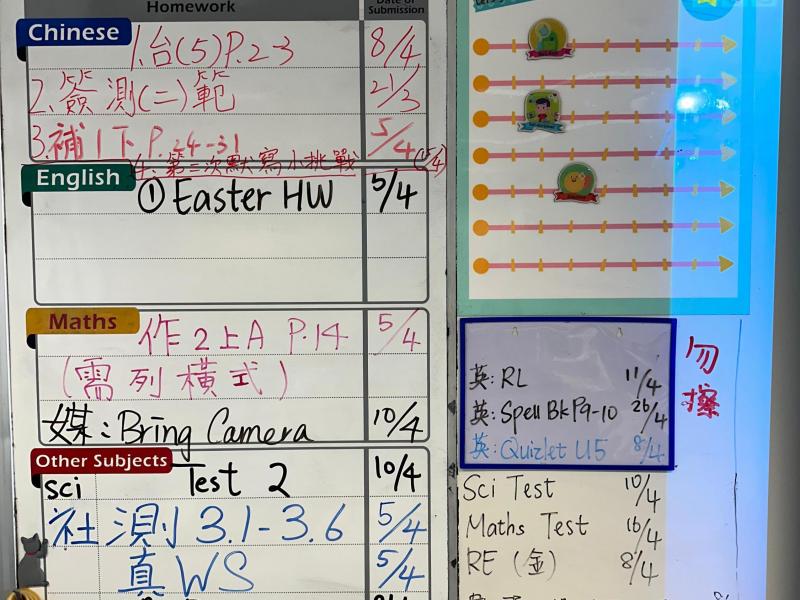 Homework
Date of Submission
Chinese
1.台(5)P.2-3 8/4
2.簽測(二)範 21/3
3.補1下P.24-31 5/4
4.第三次默寫小挑戰 (15/4)
English
① Easter HW 5/4
Maths
作2上A P.14 5/4
(需列橫式)
媒:Bring Camera 10/4
Other Subjects
sci Test 2 10/4
社測3.1-3.6 5/4
真WS 5/4
英:RL 11/4
英:Spell Bk P9-10 26/4
英:Quizlet U5 8/4
勿擦
Sci Test 10/4
Maths Test 16/4
RE (金) 8/4